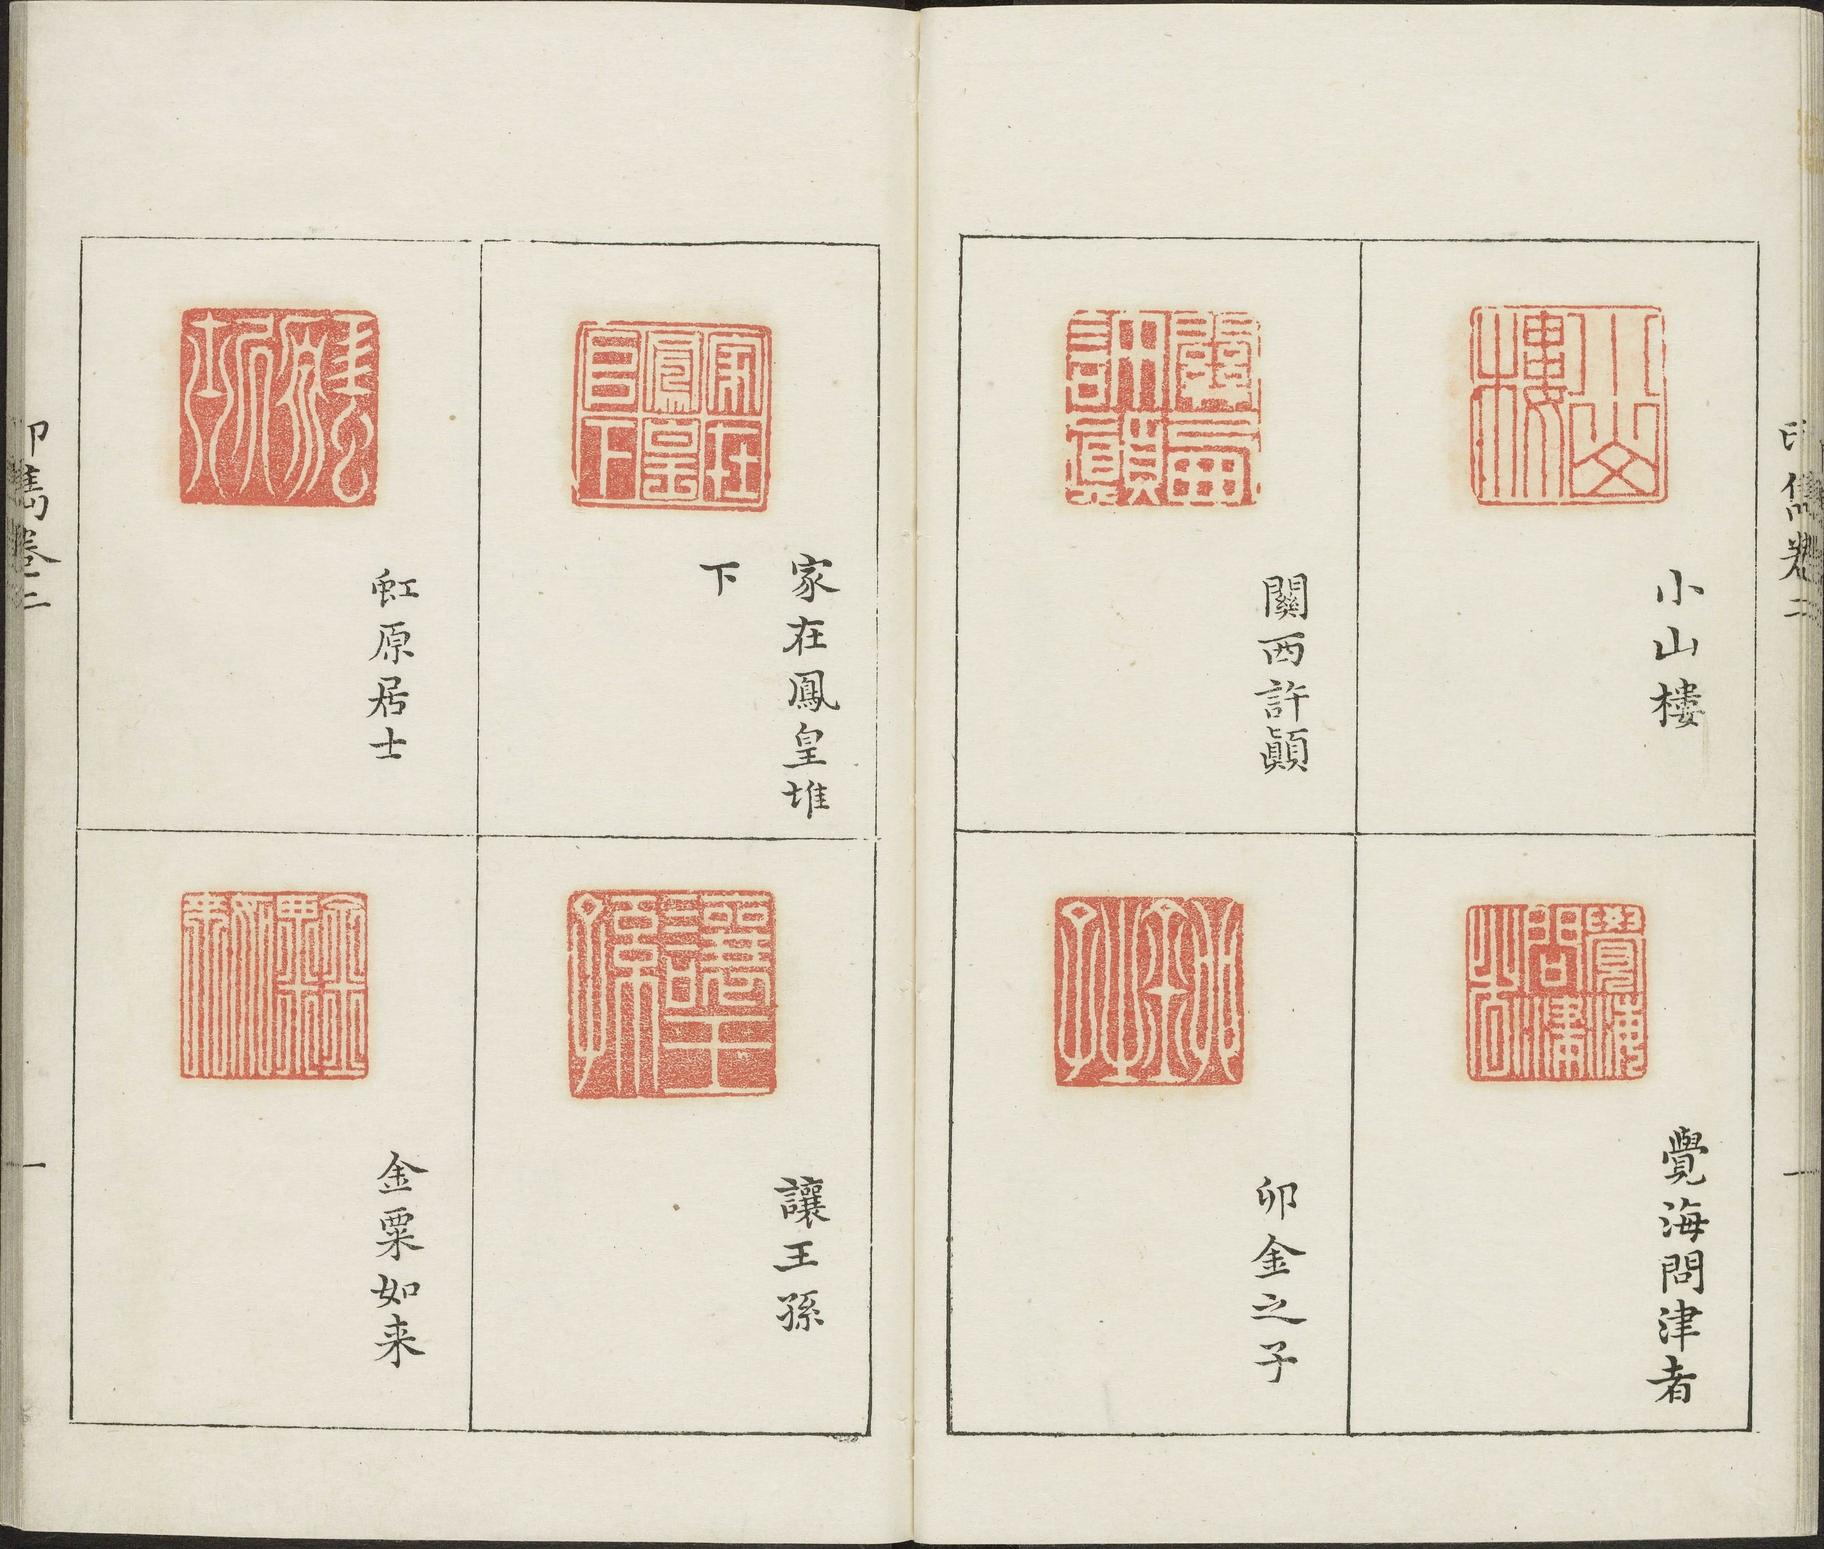 印雋卷二
一
小山樓
覺海問津者
關西許顗
卯金之子
家在鳳皇堆
下
讓王孫
虹原居士
金粟如来
印雋卷二
一